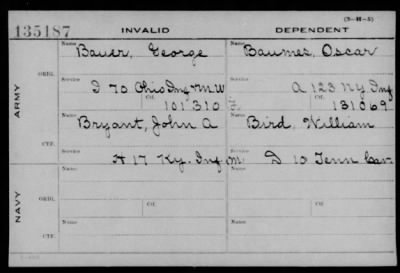 (3-H-5)
135187 INVALID DEPENDENT
Name Name
Bauer, George Baumes, Oscar
ORIG. Service Service
I 70 Ohio Inf + M W A 123 N.Y. Inf
Ctf. Ctf.
101 310 131 069
ARMY
Name Name
Bryant, John A Bird, William
CTF. Service Service
H 17 Ky. Inf M D 10 Tenn Cav
Name Name
NAVY
ORIG. Ctf. Ctf.
CTF. Name Name